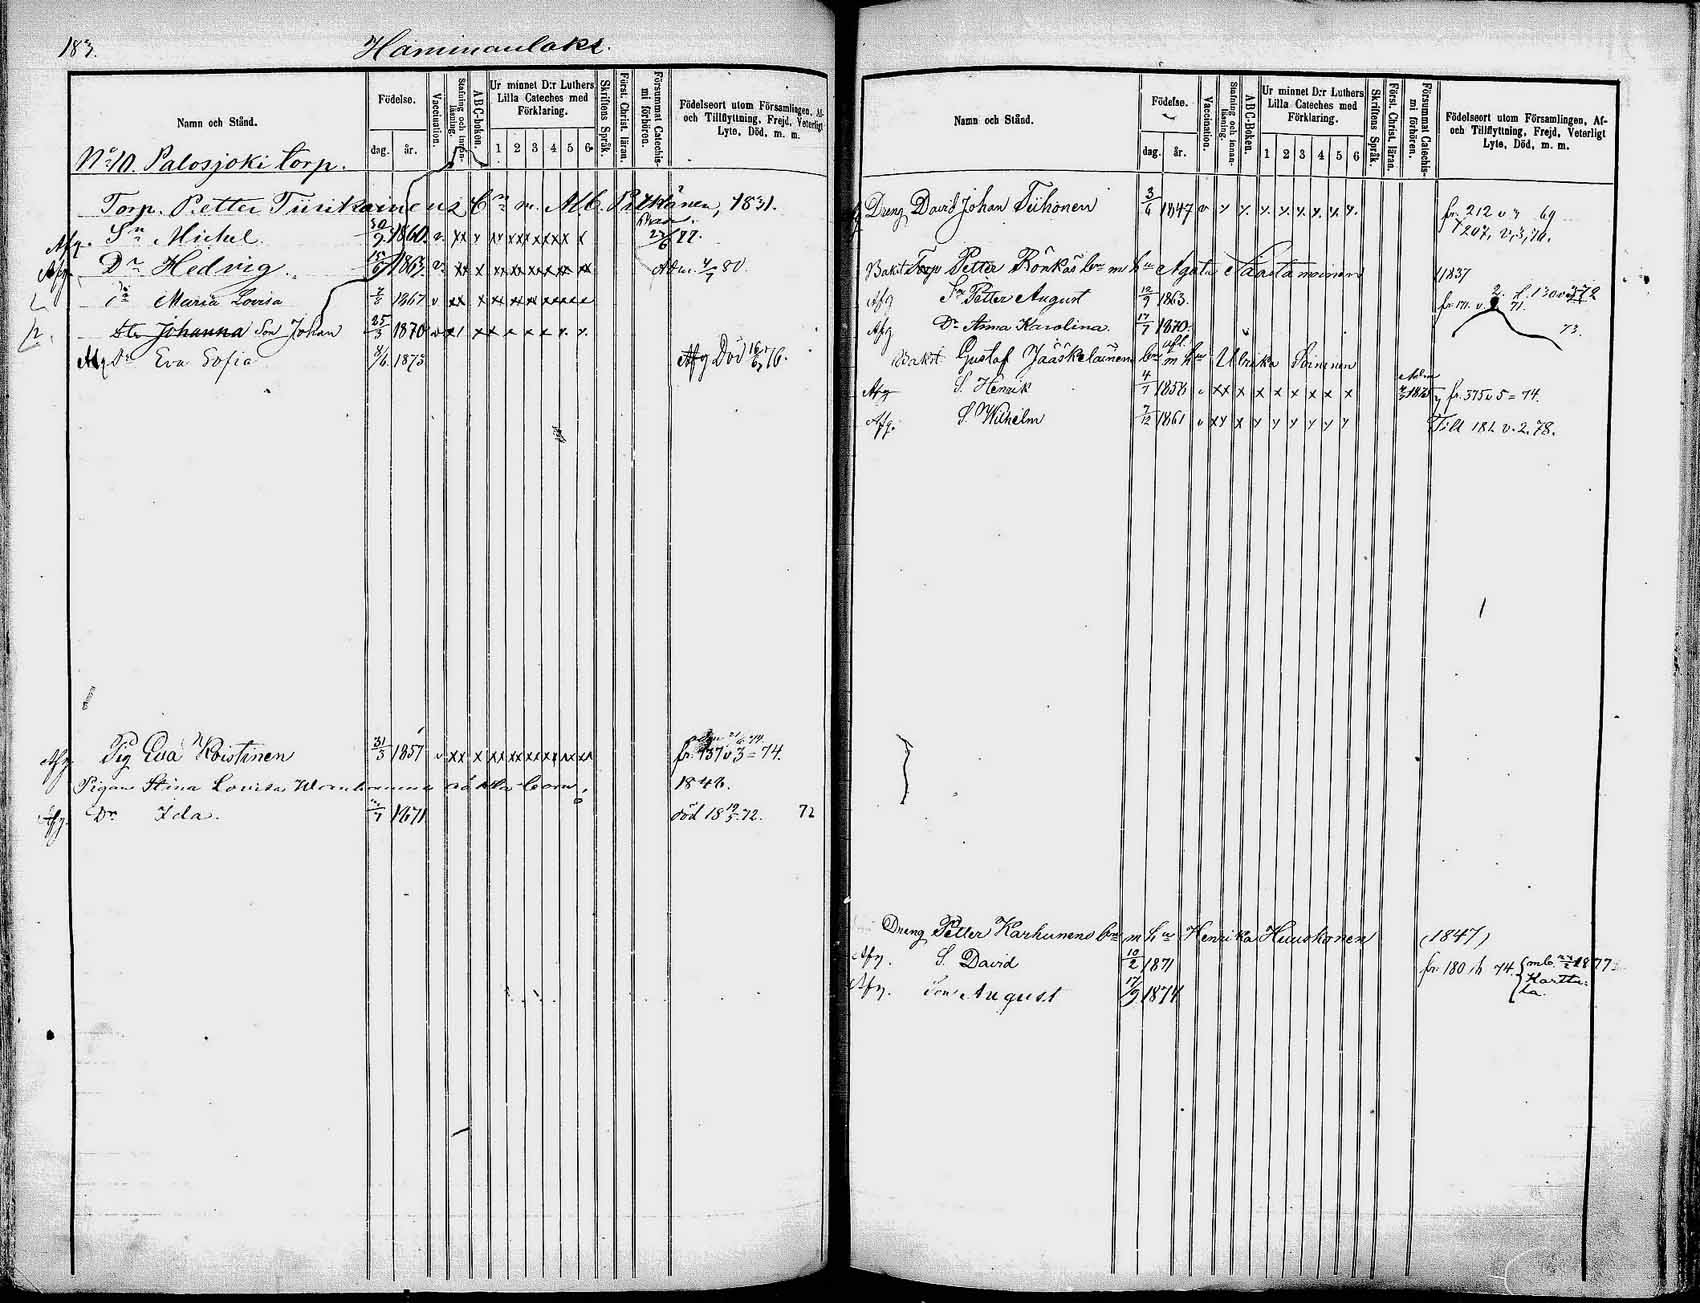 183.
Haminanlaks.
Namn och Stånd.
Födelse.
dag.
år.
Vaccination.
Stafning och innan-läsning.
ABC-boken.
Ur minnet D:r Luthers
Lilla Cateches med
Förklaring.
1 2 3 4 5 6
Skriftens Språk.
Först. Christ. läran.
Försummat Catechis-
mi förhören.
Födelseort utom Församlingen, Af-
och Tillflyttning, Frejd, Veterligt
Lyte, Död, m. m.
No 10. Palosjoki torp.
Torp. Petter Tiirikainens Bn m. M C. Pitkänen, 1831.
Afg. Sn Michel 30/9 1860. v. xx x xx xx x x x x x 77.
Afg. Dr Hedvig. 1863. v. xx x xx xx x x x x Adm. 4/7 80.
Maria Lovisa 1867 v xx x
Johanna Son Johan 25/3 1870
Afg Dr Eva Sofia 1873 Afg Död 76.
Afg Pig Eva Koistinen 31/3 1857 v xx x xx xx xx x xx fr. 437 v 3 = 74.
Pigan Stina Lovisa oäkta barn. 1846.
Afg. Dr Ida. 1871 död 18 19/5 72. 72
Namn och Stånd.
Födelse.
dag.
år.
Vaccination.
Stafning och innan-läsning.
ABC-boken.
Ur minnet D:r Luthers
Lilla Cateches med
Förklaring.
1 2 3 4 5 6
Skriftens Språk.
Först. Christ. läran.
Försummat Catechis-
mi förhören.
Födelseort utom Församlingen, Af-
och Tillflyttning, Frejd, Veterligt
Lyte, Död, m. m.
Dreng David Johan Tiihonen 3/6 1847 v y y. y. y. y. y. y. y. fr. 212 v 69
207, v. 3, 70.
Bakst Torp Petter Rönkäs bn m hu Agata Saastamoinen 1837
Afg Sn Petter August 12/9 1863. fr. 171. v. 71.
Afg Dr Anna Karolina 17/7 1870. 73.
Bakst. Gustaf Jääskeläinens bn m afl. hu Ulrika Soininen
Afg S. Henrik 4/7 1858 v xx x x x x x x x fr. 375 v 5 = 74.
Afg. S. Wilhelm 7/12 1861 v xy x y y y y y y Till 182 v. 2. 78.
Dreng Petter Karhunens bn m hu Henrika Huuskonen (1847)
Afg. S. David 10/2 1871 fr. 180 74. 1877
Afg. Son August 17/9 1874 Karttu-
la.